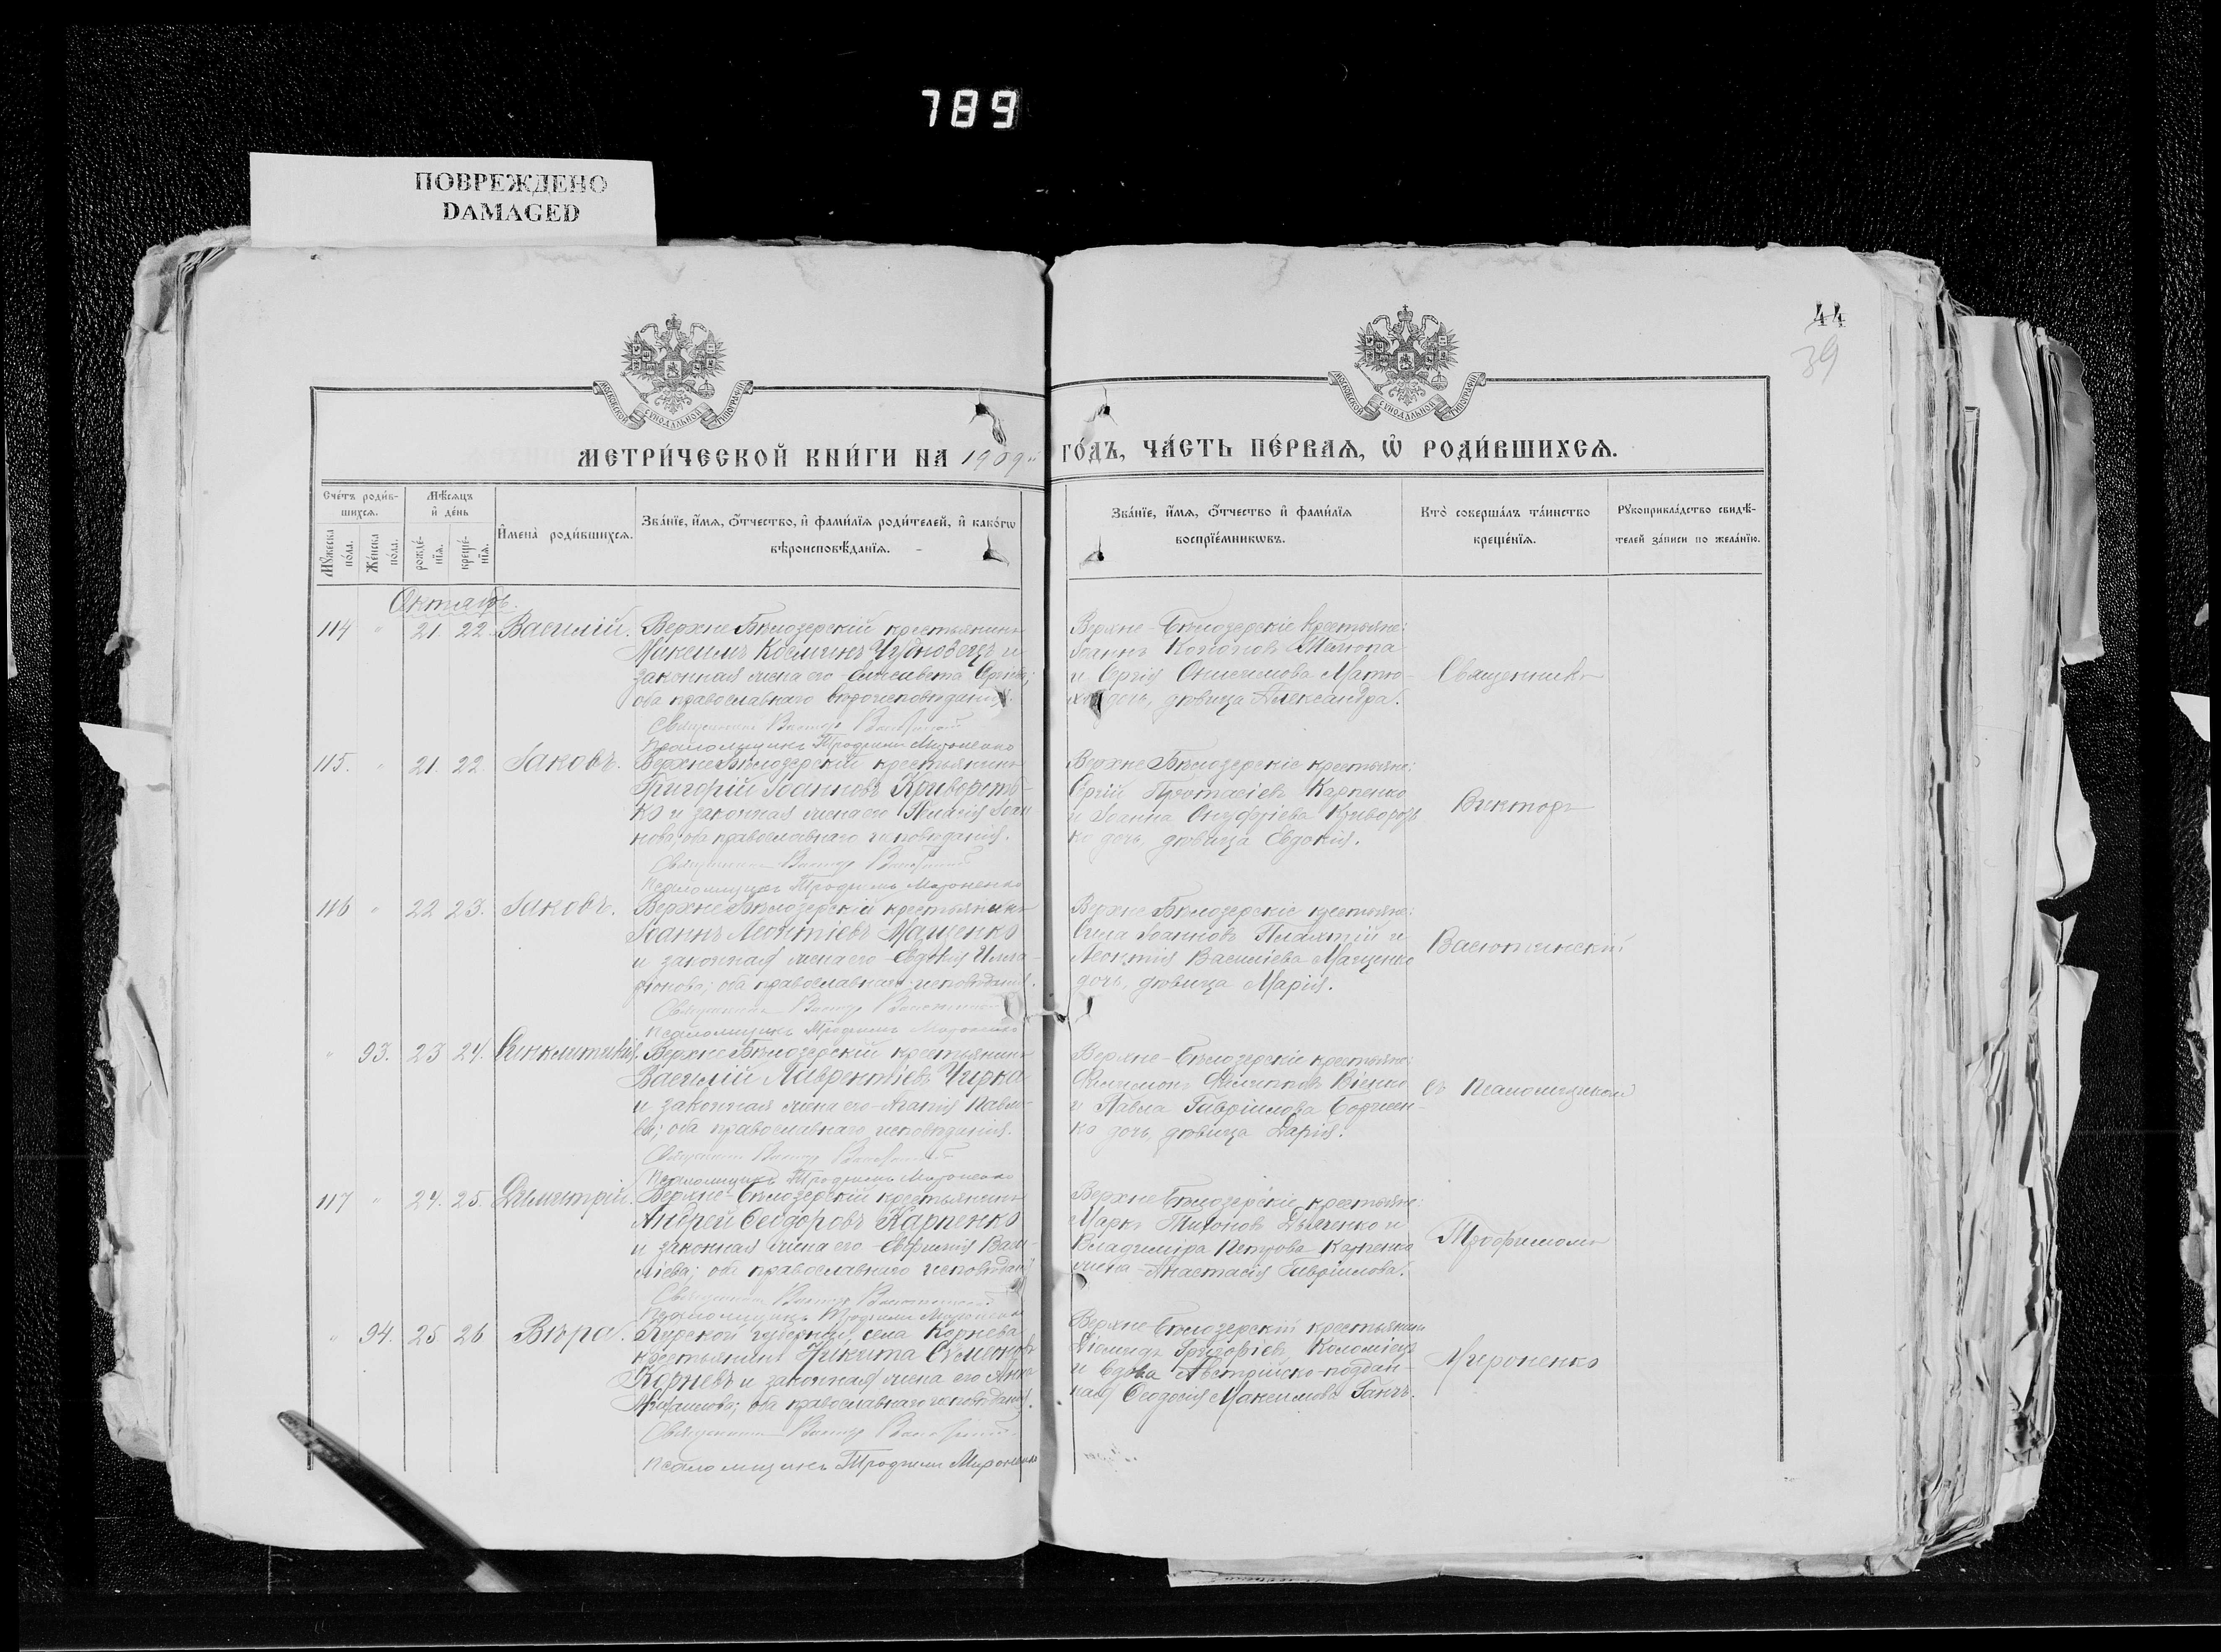 789
ПОВРЕЖДЕНО
DAMAGED
44
39
МОСКОВСКОЙ СѴНОДАЛЬНОЙ ТИПОГРАФІИ
МОСКОВСКОЙ СѴНОДАЛЬНОЙ ТИПОГРАФІИ
МЕТРИ́ЧЕСКОЙ КНИ́ГИ НА 1909
ГО́ДЪ, ЧА́СТЬ ПЕ́РВАѦ, Ѡ҆ РОДИ́ВШИХСѦ.
Сче́тъ роди́в-
шихсѧ.
Мꙋ́жеска
по́ла.
Же́нска
по́ла.
Мѣ́сѧцъ
и҆ де́нь
рожде́-
нїѧ.
креще́-
нїѧ.
И҆мена̀ роди́вшихсѧ.
Зва́нїе, и҆́мѧ, ѻ҆́тчество, и҆ фами́лїѧ роди́телей, и҆ како́гѡ
вѣроисповѣ́данїѧ.
Зва́нїе, и҆́мѧ, ѻ҆́тчество и҆ фами́лїѧ
воспрїе́мникѡвъ.
Кто̀ соверша́лъ та́инство
креще́нїѧ.
Рꙋкоприкла́дство свидѣ́-
телей за́писи по жела́нїю.
Октябрь.
114 " 21. 22. Василій.
Верхне Бѣлозерскій крестьянинъ
Максимъ Косминъ Чудновецъ и
законная жена его Елисавета Сергіева;
оба православнаго вѣроисповѣданія.
Священникъ Викторъ
Псаломщикъ Трофимъ Мироненко
Верхне-Бѣлозерскіе крестьяне:
Іоаннъ Кононовъ Шелюпа
и Сергія Онисимова Матю-
дочь, дѣвица Александра.
Священникъ
115. " 21. 22. Іаковъ.
Верхне Бѣлозерскій крестьянинъ
Григорій Іоанновъ Криворотъ-
ко и законная жена его Пелагія Іоан
нова; оба православнаго исповѣданія.
Священникъ Викторъ
Псаломщикъ Трофимъ Мироненко
Верхне Бѣлозерскіе крестьяне:
Сергій Протасіевъ Карпенко
и Іоанна Онуфріева Криворотъ
ко дочь, дѣвица Евдокія.
Викторъ
116 " 22 23. Іаковъ.
Верхне Бѣлозерскій крестьянинъ
Іоаннъ Леонтіевъ Мащенко
и законная жена его Евдокія Илла-
ріонова; оба православнаго исповѣданія.
Священникъ Викторъ
Псаломщикъ Трофимъ Мироненко
Верхне Бѣлозерскіе крестьяне:
Сила Іоанновъ Плахтій и
Леонтія Василіева Мащенко
дочь, дѣвица Марія.
Васютинскій
" 93. 23 24. Синклитикія.
Верхне Бѣлозерскій крестьянинъ
Василій Лаврентіевъ Чирка
и законная жена его Агапія Павло-
ва; оба православнаго исповѣданія.
Священникъ Викторъ
Псаломщикъ Трофимъ Мироненко
Верхне-Бѣлозерскіе крестьяне:
Филимонъ Филипповъ
и Павла Гавріилова
ко дочь, дѣвица Дарія.
съ псаломщикомъ
117 " 24. 25. Димитрій.
Верхне-Бѣлозерскій крестьянинъ
Андрей Ѳеодоровъ Карпенко
и законная жена его Евфимія Васи-
ліева; оба православнаго исповѣданія
Священникъ Викторъ
Псаломщикъ Трофимъ Мироненко
Верхне Бѣлозерскіе крестьяне:
Маркъ Тихоновъ Дьяченко и
Владиміра Петрова Карпенко
жена Анастасія Гавріилова.
Трофимомъ
" 94. 25 26 Вѣра.
Курской губерніи, села Корнева
крестьянинъ Никита Симеоновъ
Корневъ и законная жена его Анна
оба православнаго исповѣданія.
Священникъ Викторъ
Псаломщикъ Трофимъ Мироненко
Верхне-Бѣлозерскій крестьянинъ
Діомидъ Григоріевъ Коломіецъ
и вдова Австрійско-поддан-
ная Ѳеодосія Максимова Ганчъ.
Мироненко